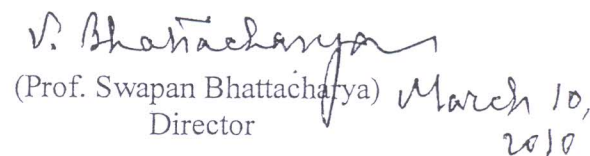 S. Bhattacharya
(Prof. Swapan Bhattacharya) March 10,
Director 2010